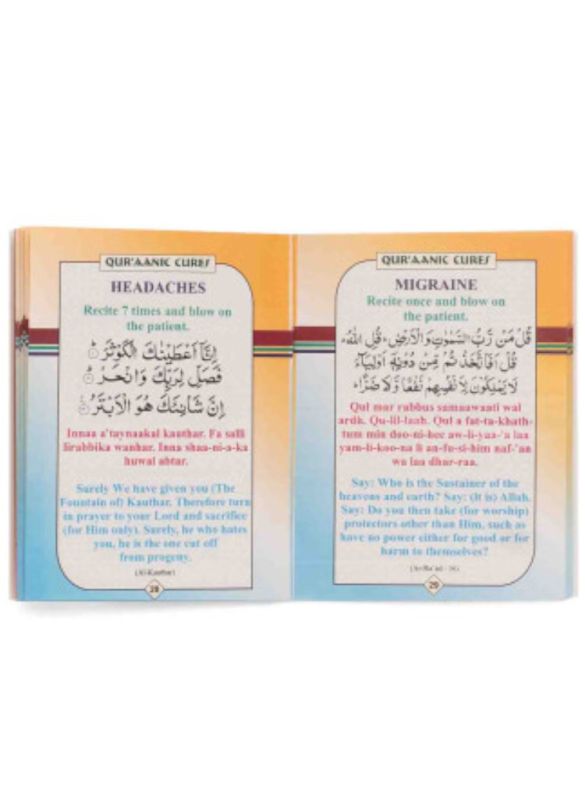 QUR'AANIC CURES
HEADACHES
Recite 7 times and blow on
the patient.
اِنَّآ اَعْطَيْنٰكَ الْكَوْثَرَ ۞
فَصَلِّ لِرَبِّكَ وَانْحَرْ ۞
اِنَّ شَانِئَكَ هُوَ الْاَبْتَرُ ۞
Innaa a'taynaakal kauthar. Fa salli
lirabbika wanhar. Inna shaa-ni-a-ka
huwal abtar.
Surely We have given you (The
Fountain of) Kauthar. Therefore turn
in prayer to your Lord and sacrifice
(for Him only). Surely, he who hates
you, he is the one cut off
from progeny.
(Al-Kauthar)
28
QUR'AANIC CURES
MIGRAINE
Recite once and blow on
the patient.
قُلْ مَنْ رَّبُّ السَّمٰوٰتِ وَالْاَرْضِ ؕ قُلِ اللّٰهُ ؕ
قُلْ اَفَاتَّخَذْتُمْ مِّنْ دُوْنِهٖٓ اَوْلِيَآءَ
لَا يَمْلِكُوْنَ لِاَنْفُسِهِمْ نَفْعًا وَّلَا ضَرًّا ؕ
Qul mar rabbus samaawaati wal
ardh. Qu-lil-laah. Qul a fat-ta-khath-
tum min doo-ni-hee aw-li-yaa-'a laa
yam-li-koo-na li an-fu-si-him naf-'an
wa laa dhar-raa.
Say: Who is the Sustainer of the
heavens and earth? Say: (It is) Allah.
Say: Do you then take (for worship)
protectors other than Him, such as
have no power either for good or for
harm to themselves?
(Ar-Ra'ad - 16)
29